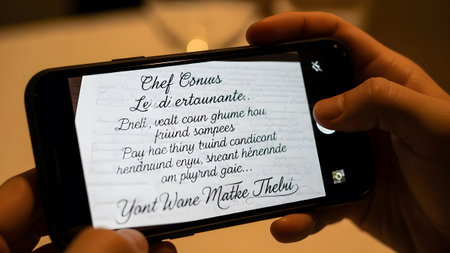 Chef Conuus
Le di ertaunante..
Dreli, vealt coun ghume hou
friund sompees
Pay hae thiny tuind candicont
rendnund enyu, sheant hénennde
om plyrnd gaie...
Yant Wane Matke Thelui